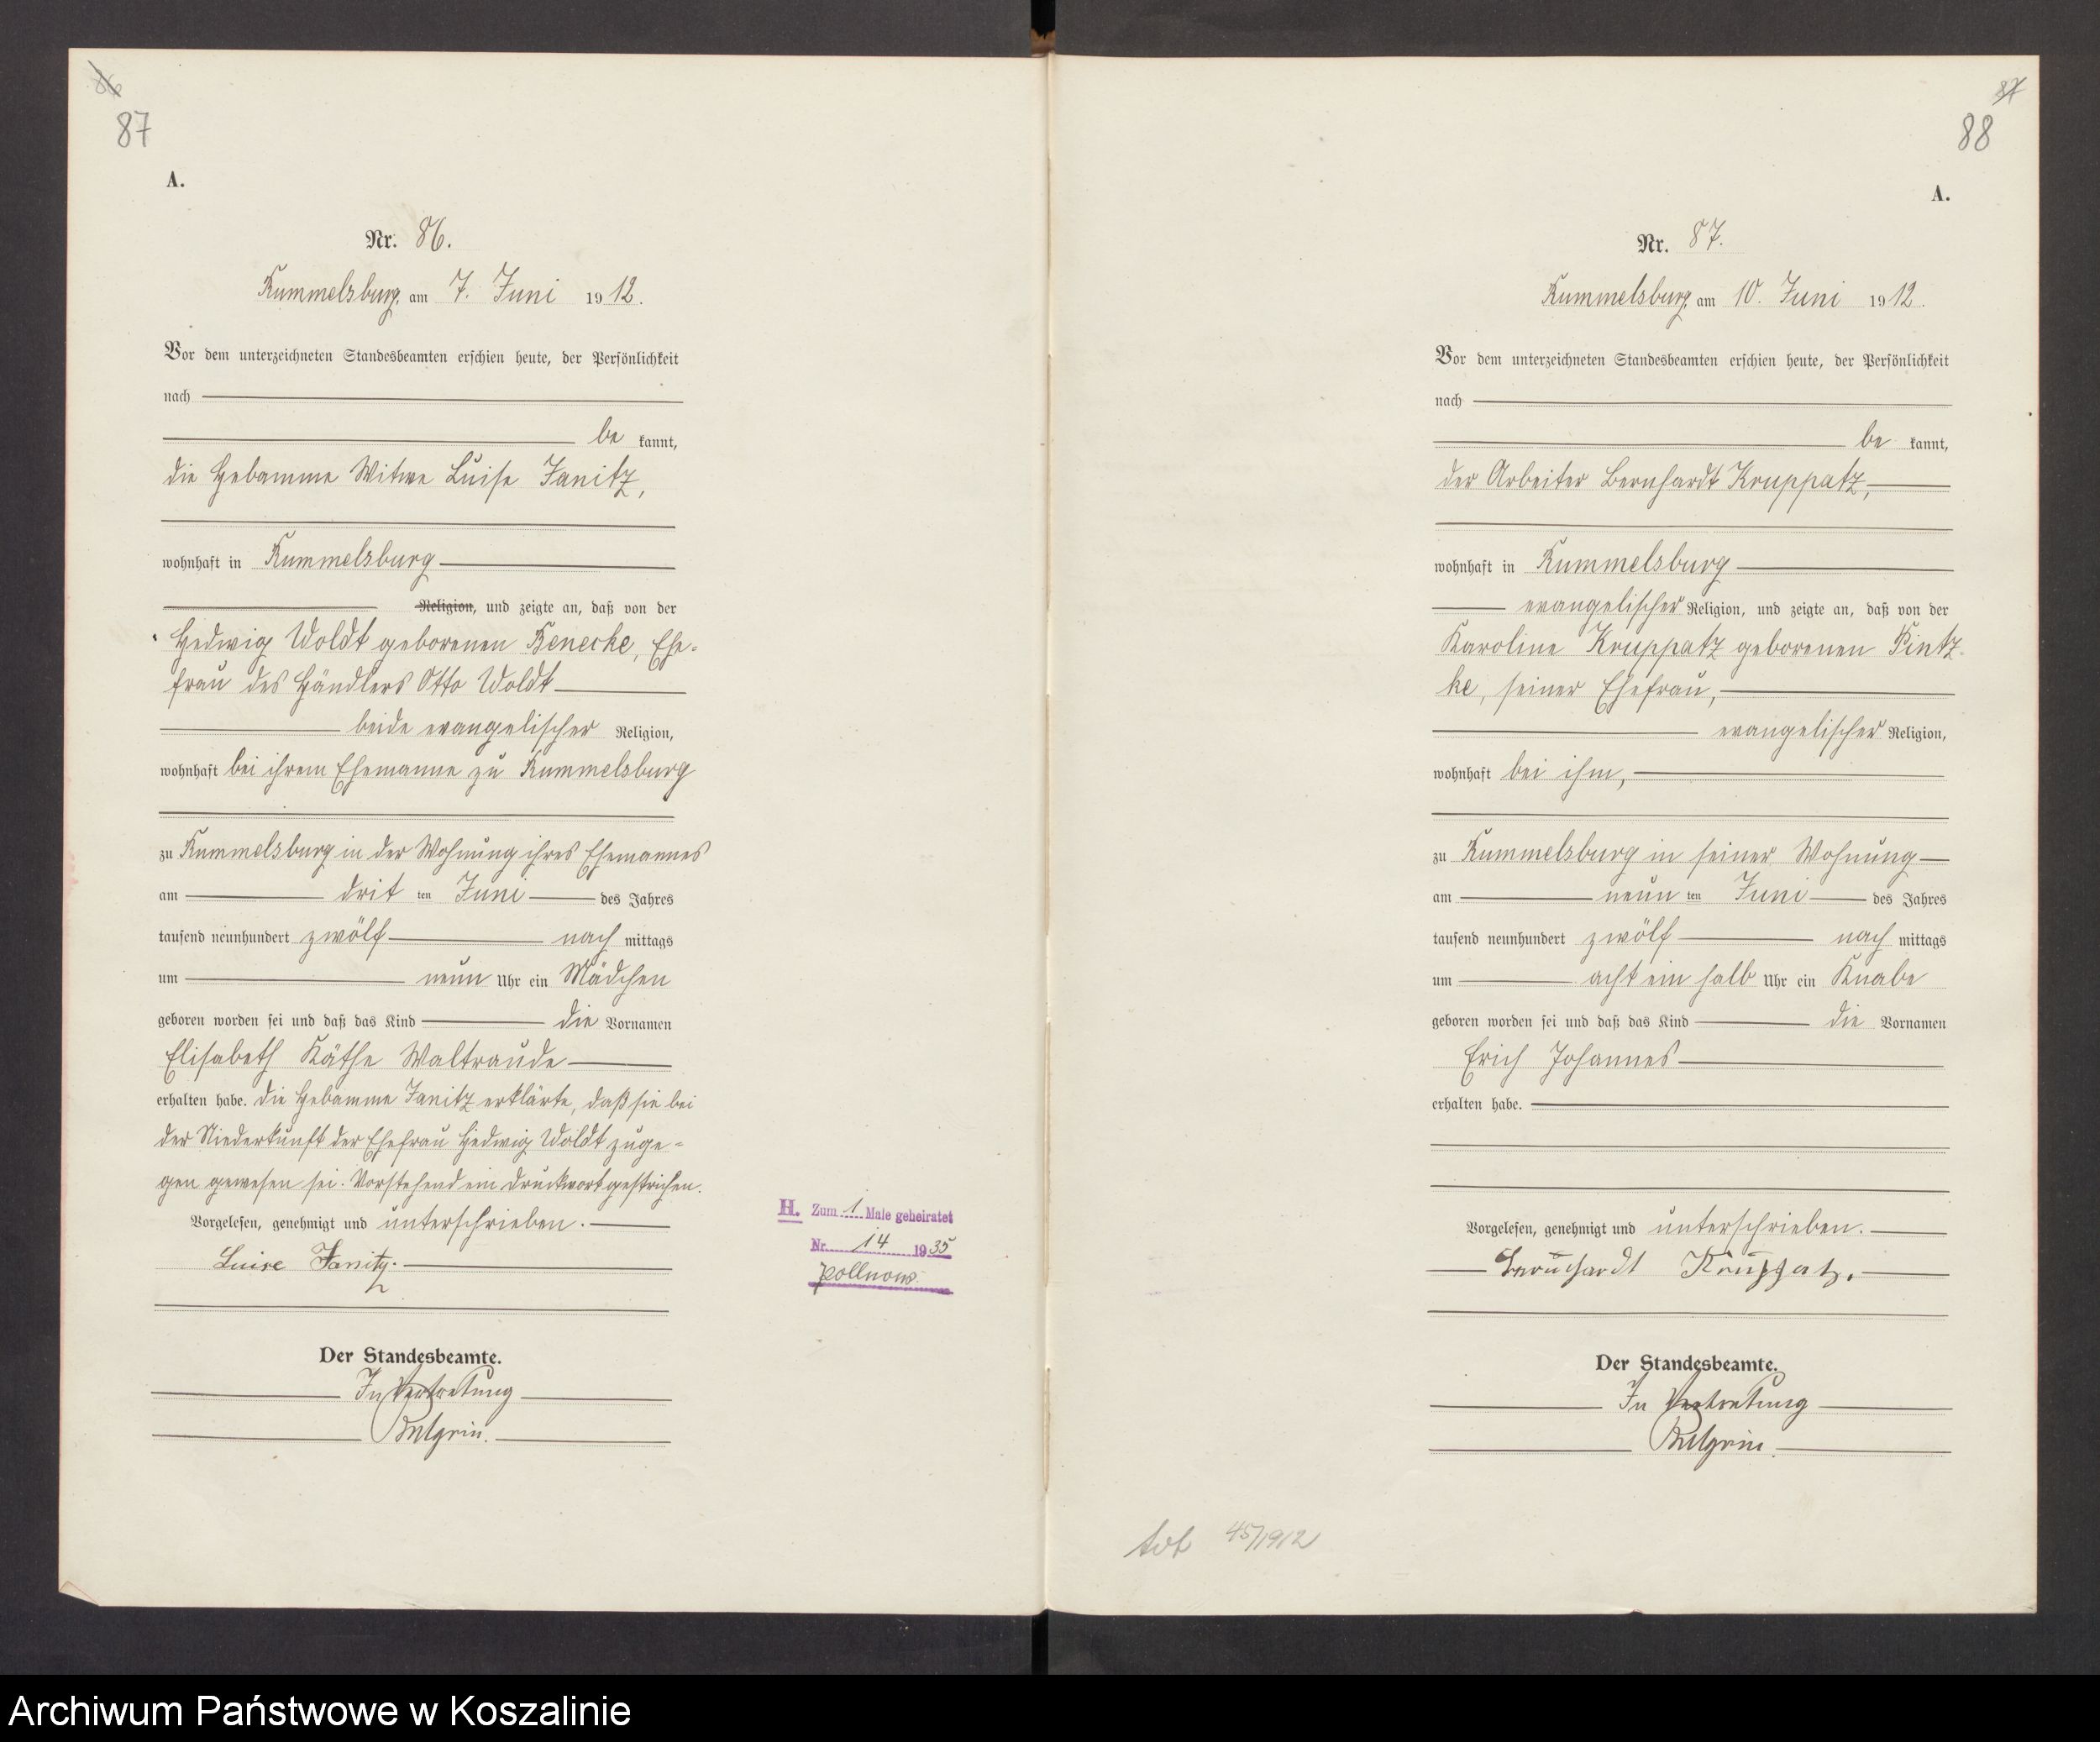 86
87
A.
Nr. 86.
Rummelsburg, am 7. Juni 1912.
Vor dem unterzeichneten Standesbeamten erschien heute, der Persönlichkeit
nach
be kannt,
die Hebamme Witwe Luise Janitz,
wohnhaft in Rummelsburg
Religion, und zeigte an, daß von der
Hedwig Woldt geborenen Benecke, Ehe-
frau des Händlers Otto Woldt
beide evangelischer Religion,
wohnhaft bei ihrem Ehemanne zu Rummelsburg
zu Rummelsburg in der Wohnung ihres Ehemannes
am drit ten Juni des Jahres
tausend neunhundert zwölf nach mittags
um neun Uhr ein Mädchen
geboren worden sei und daß das Kind die Vornamen
Elisabeth Käthe Waltraude
erhalten habe. Die Hebamme Janitz erklärte, daß sie bei
der Niederkunft der Ehefrau Hedwig Woldt zuge-
gen gewesen sei. Vorstehend ein Druckwort gestrichen.
Vorgelesen, genehmigt und unterschrieben.
Luise Janitz.
Der Standesbeamte.
In Vertretung
H. Zum 1 Male geheiratet
Nr. 14 1935
Pollnow
87
88
A.
Nr. 87.
Rummelsburg, am 10. Juni 1912.
Vor dem unterzeichneten Standesbeamten erschien heute, der Persönlichkeit
nach
be kannt,
der Arbeiter Bernhardt Kruppatz,
wohnhaft in Rummelsburg
evangelischer Religion, und zeigte an, daß von der
Karoline Kruppatz geborenen Pintz-
ke, seiner Ehefrau,
evangelischer Religion,
wohnhaft bei ihm,
zu Rummelsburg in seiner Wohnung
am neun ten Juni des Jahres
tausend neunhundert zwölf nach mittags
um acht ein halb Uhr ein Knabe
geboren worden sei und daß das Kind die Vornamen
Erich Johannes
erhalten habe.
Vorgelesen, genehmigt und unterschrieben.
Bernhardt Kruppatz.
Der Standesbeamte.
In Vertretung
tot 45/1912
Archiwum Państwowe w Koszalinie